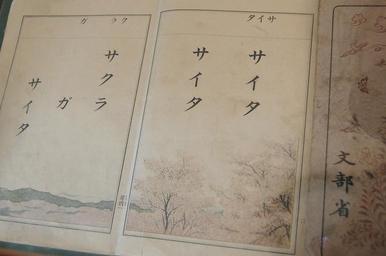 文部省
サイタ
サイタ
サイタ
クラ ガ
サクラ
ガ
サイタ